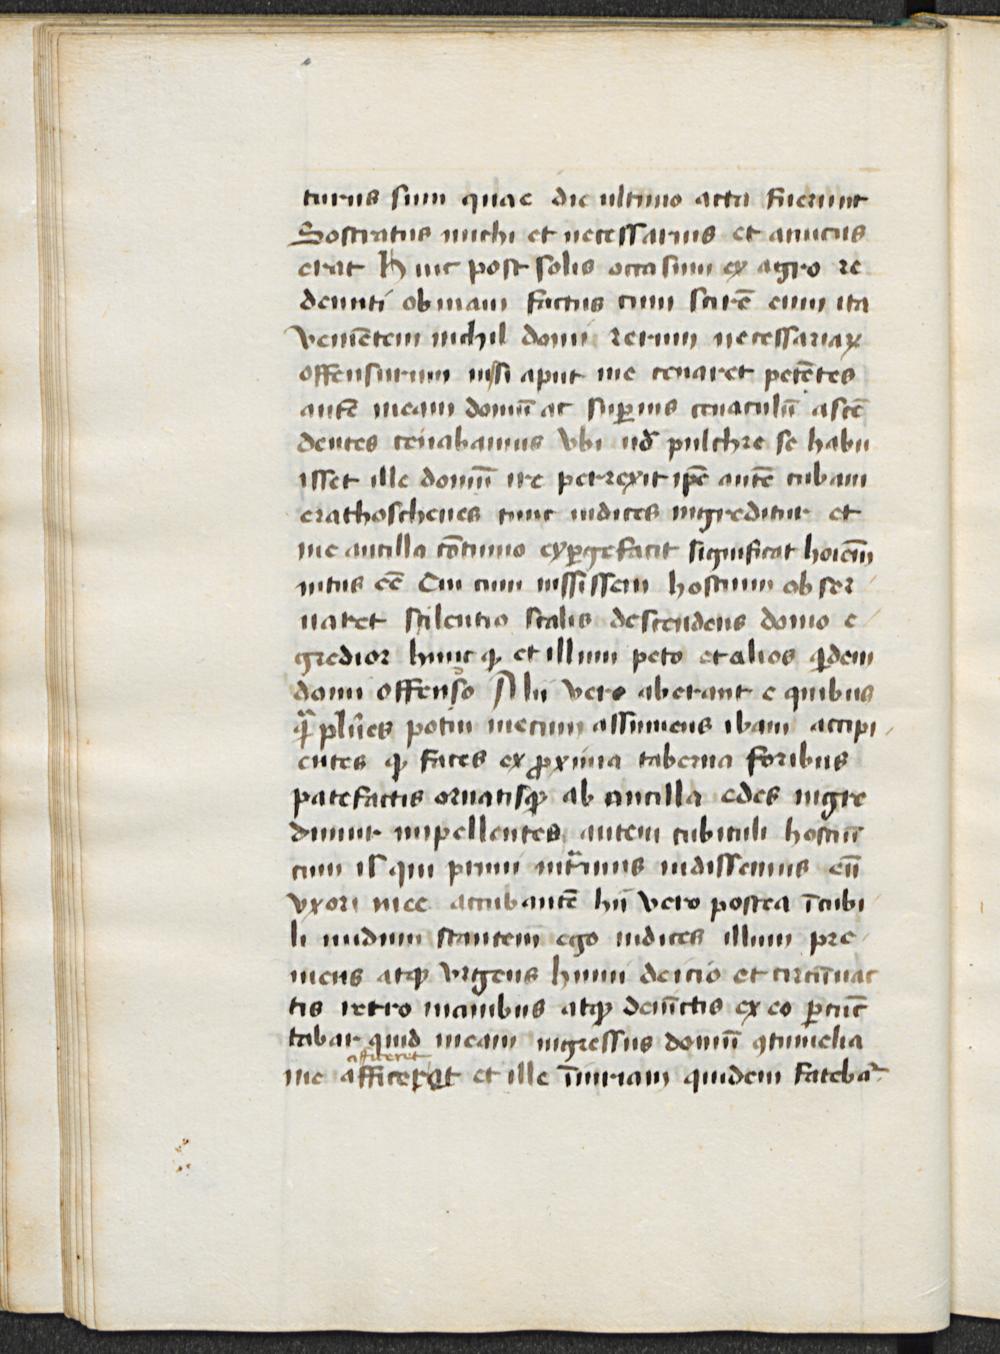 turus sum quae die ultimo acta fuerunt
Sostratus michi et necessarius et amicus
erat Huic post solis occasum ex agro re
deunti obuiam factus cum scirē eum ita
veniētem nichil domi rerum necessariaꝝ
offensurum nisi aput me cenaret petētes
autē meam domū ac supius cenaculū ascē
dentes cenabamus vbi uō pulchre se habu
isset ille domū ire perrexit ipē autē cubam
erathosthenes tunc iudices ingreditur et
me ancilla cōtinuo expgefacit significat hoiēm
intus eē Cui cum iussissem hostium obser
uaret scilentio scalis descendens domo e
gredior hunc qꝫ et illum peto et alios qdem
domi offenso Alii vero aberant e quibus
qͣ plures potui mecum assumens ibam accipi
entes qꝫ faces ex pxima taberna foribus
patefactis ornatisqꝫ ab ancilla edes ingre
dimur impellentes autem cubiculi hostiū
cum il qui primi intͣuimus uidissemus eū
vxori mee accubantē hii vero postea īcubi
li nudum stantem ego iudices illum pre
mens atqꝫ vrgens humi deicio et circūuac
tis retro manibus atqꝫ deuīctis ex eo pcūc
tabar quid meam ingressus domū ꝯtumelia
afficeret
me afficeret et ille īiuriam quidem fatebaͬ